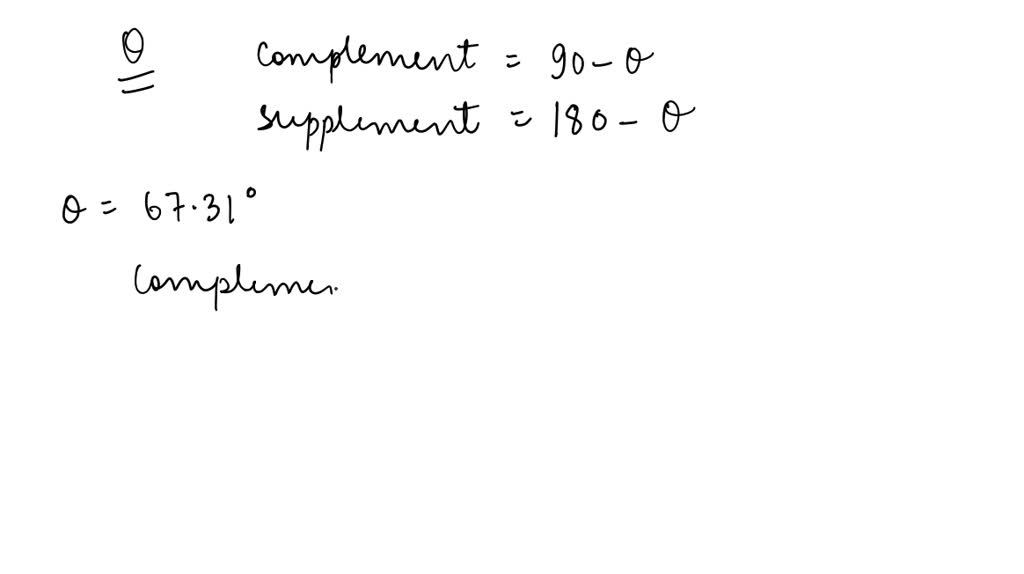 θ complement = 90 - θ
supplement = 180 - θ
θ = 67.31°
Compleme